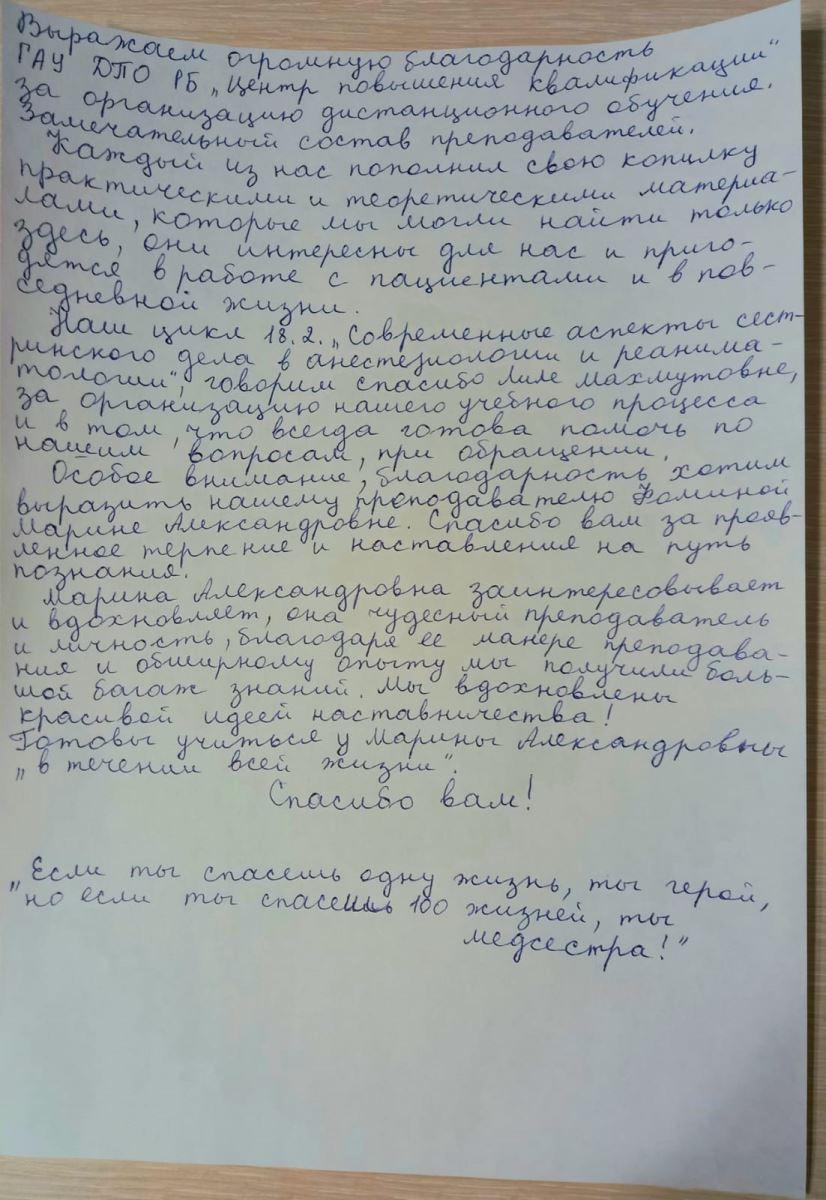 Выражаем огромную благодарность
ГАУ ДПО РБ „Центр повышения квалификации"
за организацию дистанционного обучения.
Замечательный состав преподавателей.
Каждый из нас пополнил свою копилку
практическими и теоретическими материа-
лами, которые мы могли найти только
здесь, они интересны для нас и приго-
дятся в работе с пациентами и в пов-
седневной жизни.
Наш цикл 18.2. „Современные аспекты сест-
ринского дела в анестезиологии и реанима-
тологии", говорим спасибо Лиле Махмутовне,
за организацию нашего учебного процесса
и в том, что всегда готова помочь по
нашим вопросам, при обращении.
Особое внимание, благодарность хотим
выразить нашему преподавателю Фоминой
Марине Александровне. Спасибо вам за прояв-
ленное терпение и наставления на путь
познания.
Марина Александровна заинтересовывает
и вдохновляет, она чудесный преподаватель
и личность, благодаря ее манере преподава-
ния и обширному опыту мы получили боль-
шой багаж знаний. Мы вдохновлены
красивой идеей наставничества!
Готовы учиться у Марины Александровны
„в течении всей жизни".
Спасибо вам!
„Если ты спасешь одну жизнь, ты герой,
но если ты спасешь 100 жизней, ты
медсестра!"